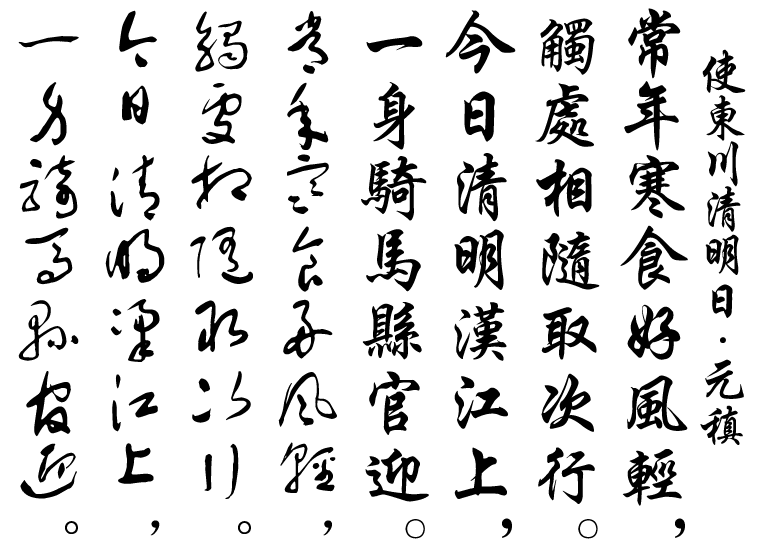 使東川清明日·元稹
常年寒食好風輕，
觸處相隨取次行。
今日清明漢江上，
一身騎馬縣官迎。
常年寒食好風輕，
觸處相隨取次行。
今日清明漢江上，
一身騎馬縣官迎。